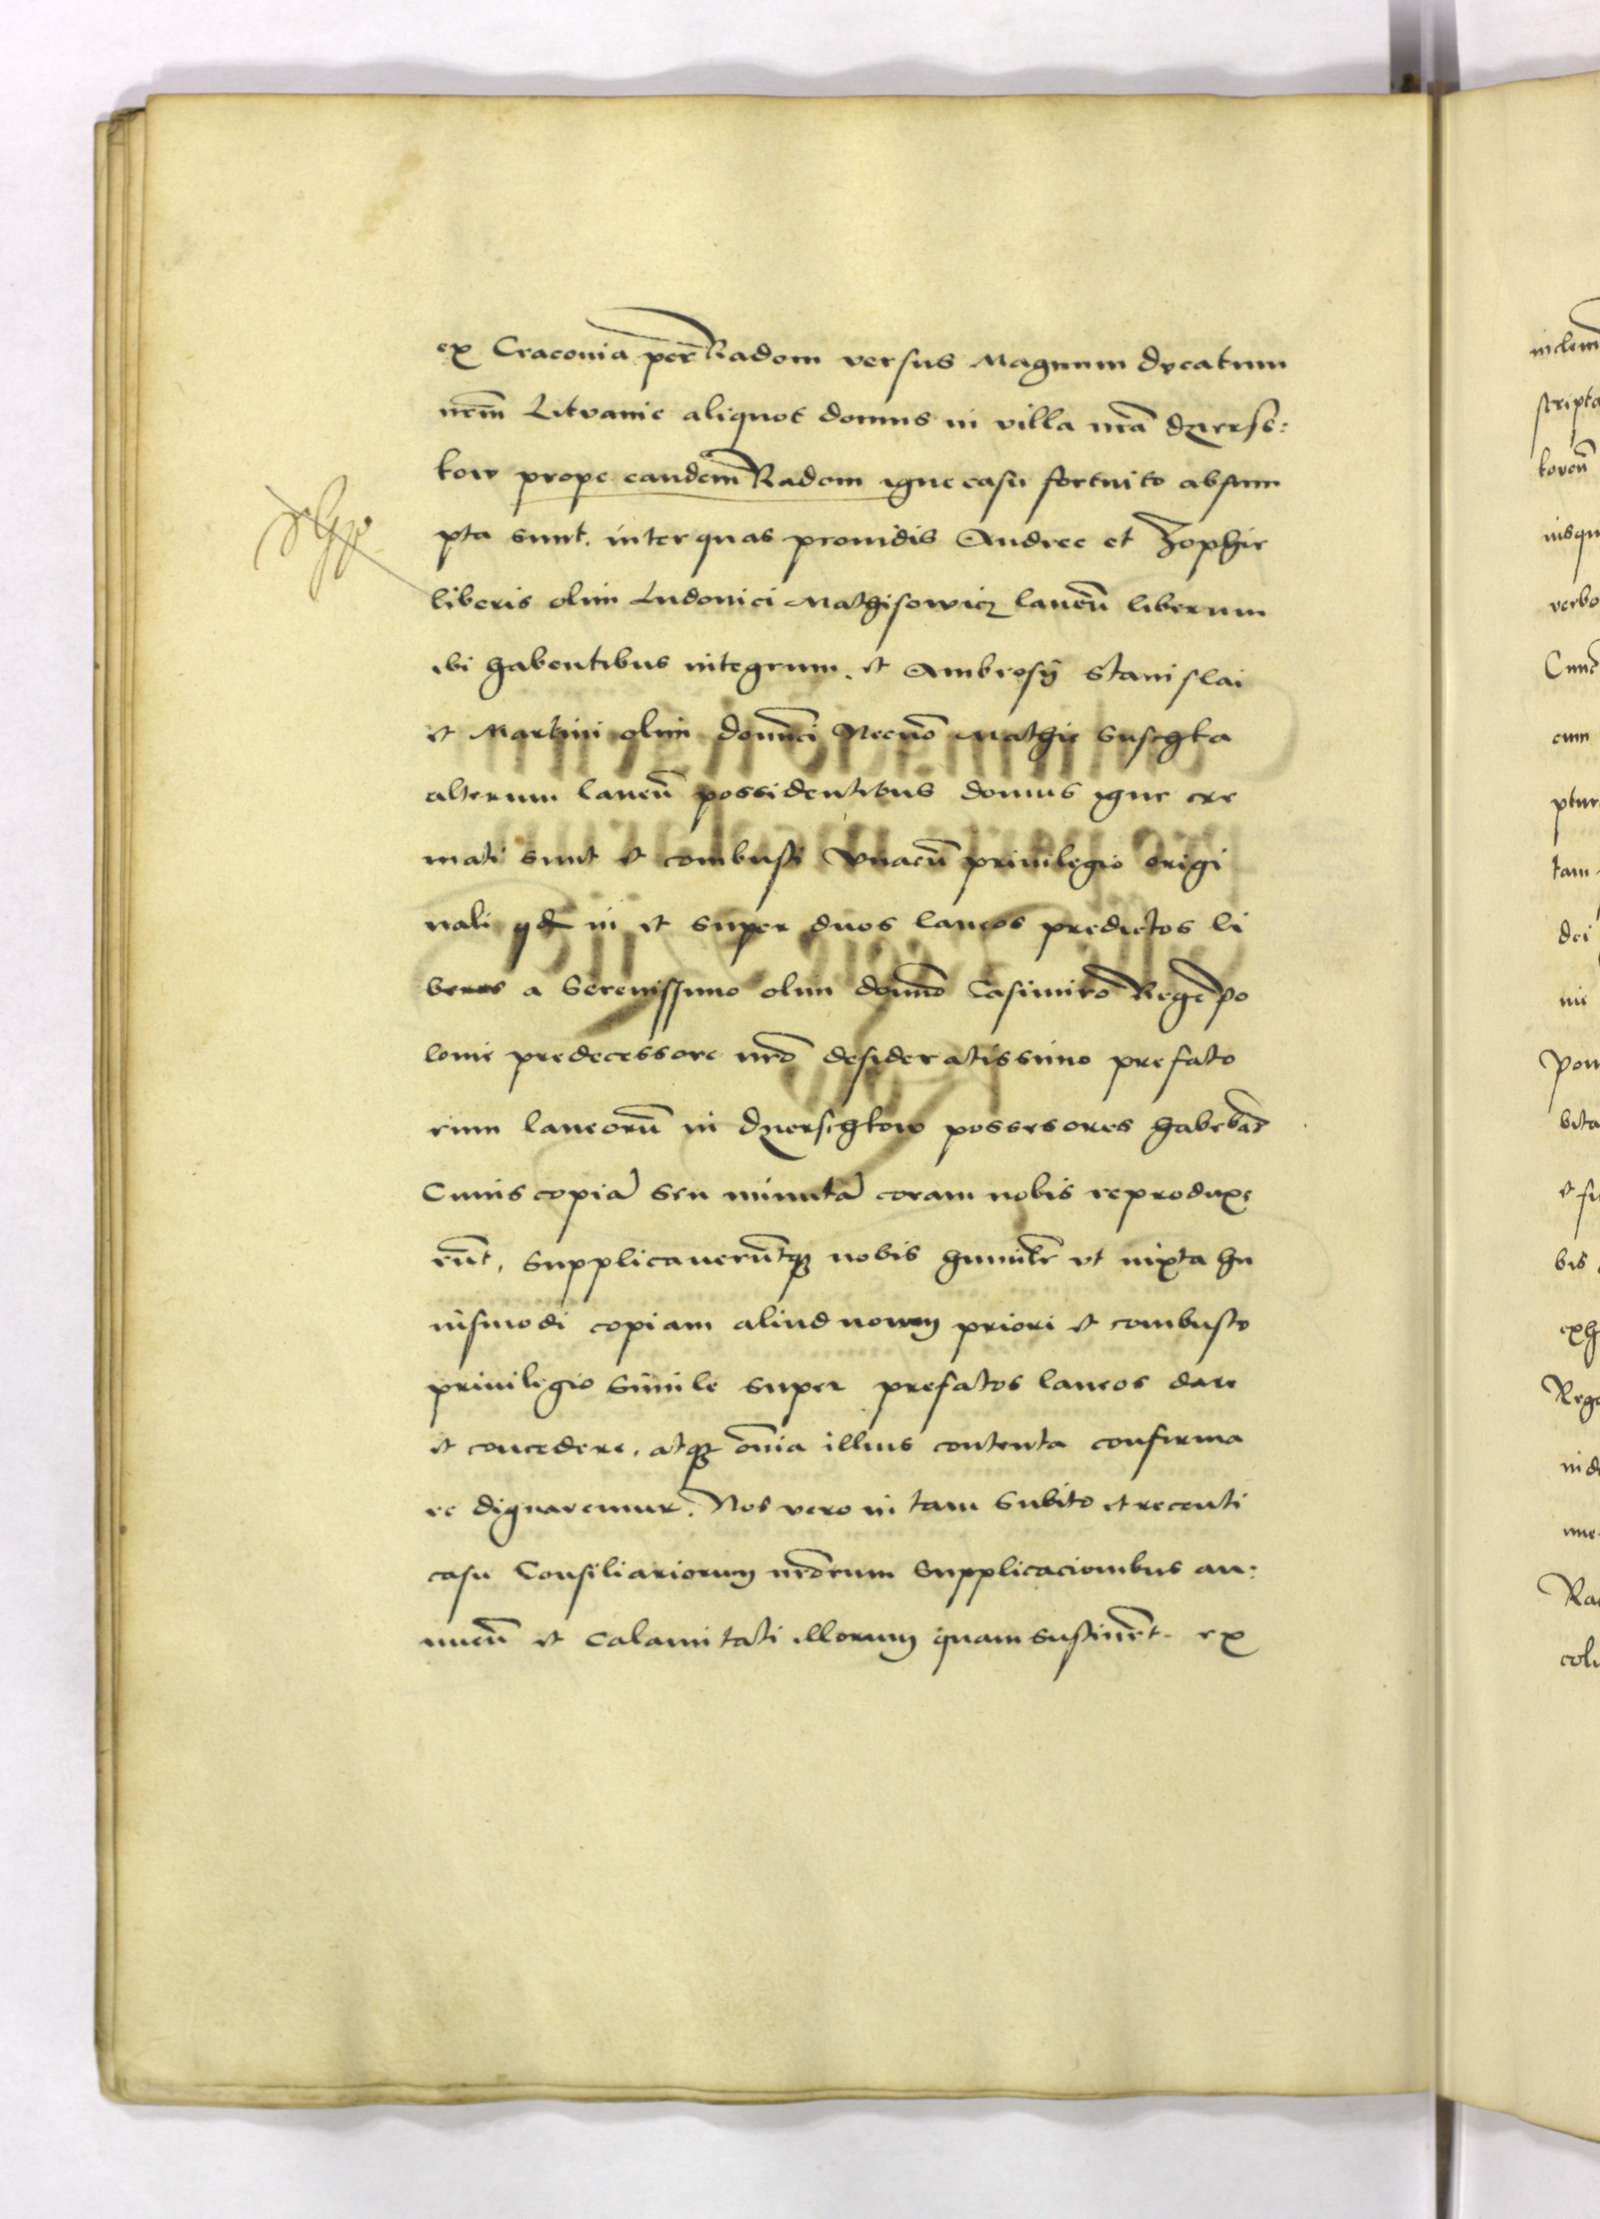 ex Cracovia per Radom versus Magnum ducatum
nrm̄ Litvanie aliquot domus in villa nrā dzers:
kow prope eandem̄ Radom igne casu fortuito absum
pta sunt. inter quas providis Andree et Zophie
liberis olim Ludovici Mathisowicz laneū liberum
ibi habentibus integrum. et Ambrosÿ Stanislai
et Martini olim Necnō Mathie
alterum laneū possidentibus domus igne cre
mati sunt et combusti vnacū privilegio origi
nali qd in et super duos laneos predictos li
beros a Serenissimo olim domīo Casimiro Rege Po
lonie predecessore nrō desideratissimo prefato
rum laneorū in dzerschkow possessores habebāt
Cuius copiā seu minutā coram nobis reproduxe
rūt, supplicaverūtqz nobis humilr̄ vt iuxta hu
iusmodi copiam aliud novum priori et combusto
privilegio simile super prefatos laneos dare
et concedere, atqz om̄ia illius contenta confirma
re dignaremur. Nos vero in tam subito et recenti
casu Consiliariorum nrōrum supplicacionibus an:
nuen̄ et calamitati illorum quam sustinēt. ex
inclem
scripta
koven̄
iusqu
verbo
cum
ptur
tam
dei
bita
et su
bis
exh
Rege
in de
Ra
colu